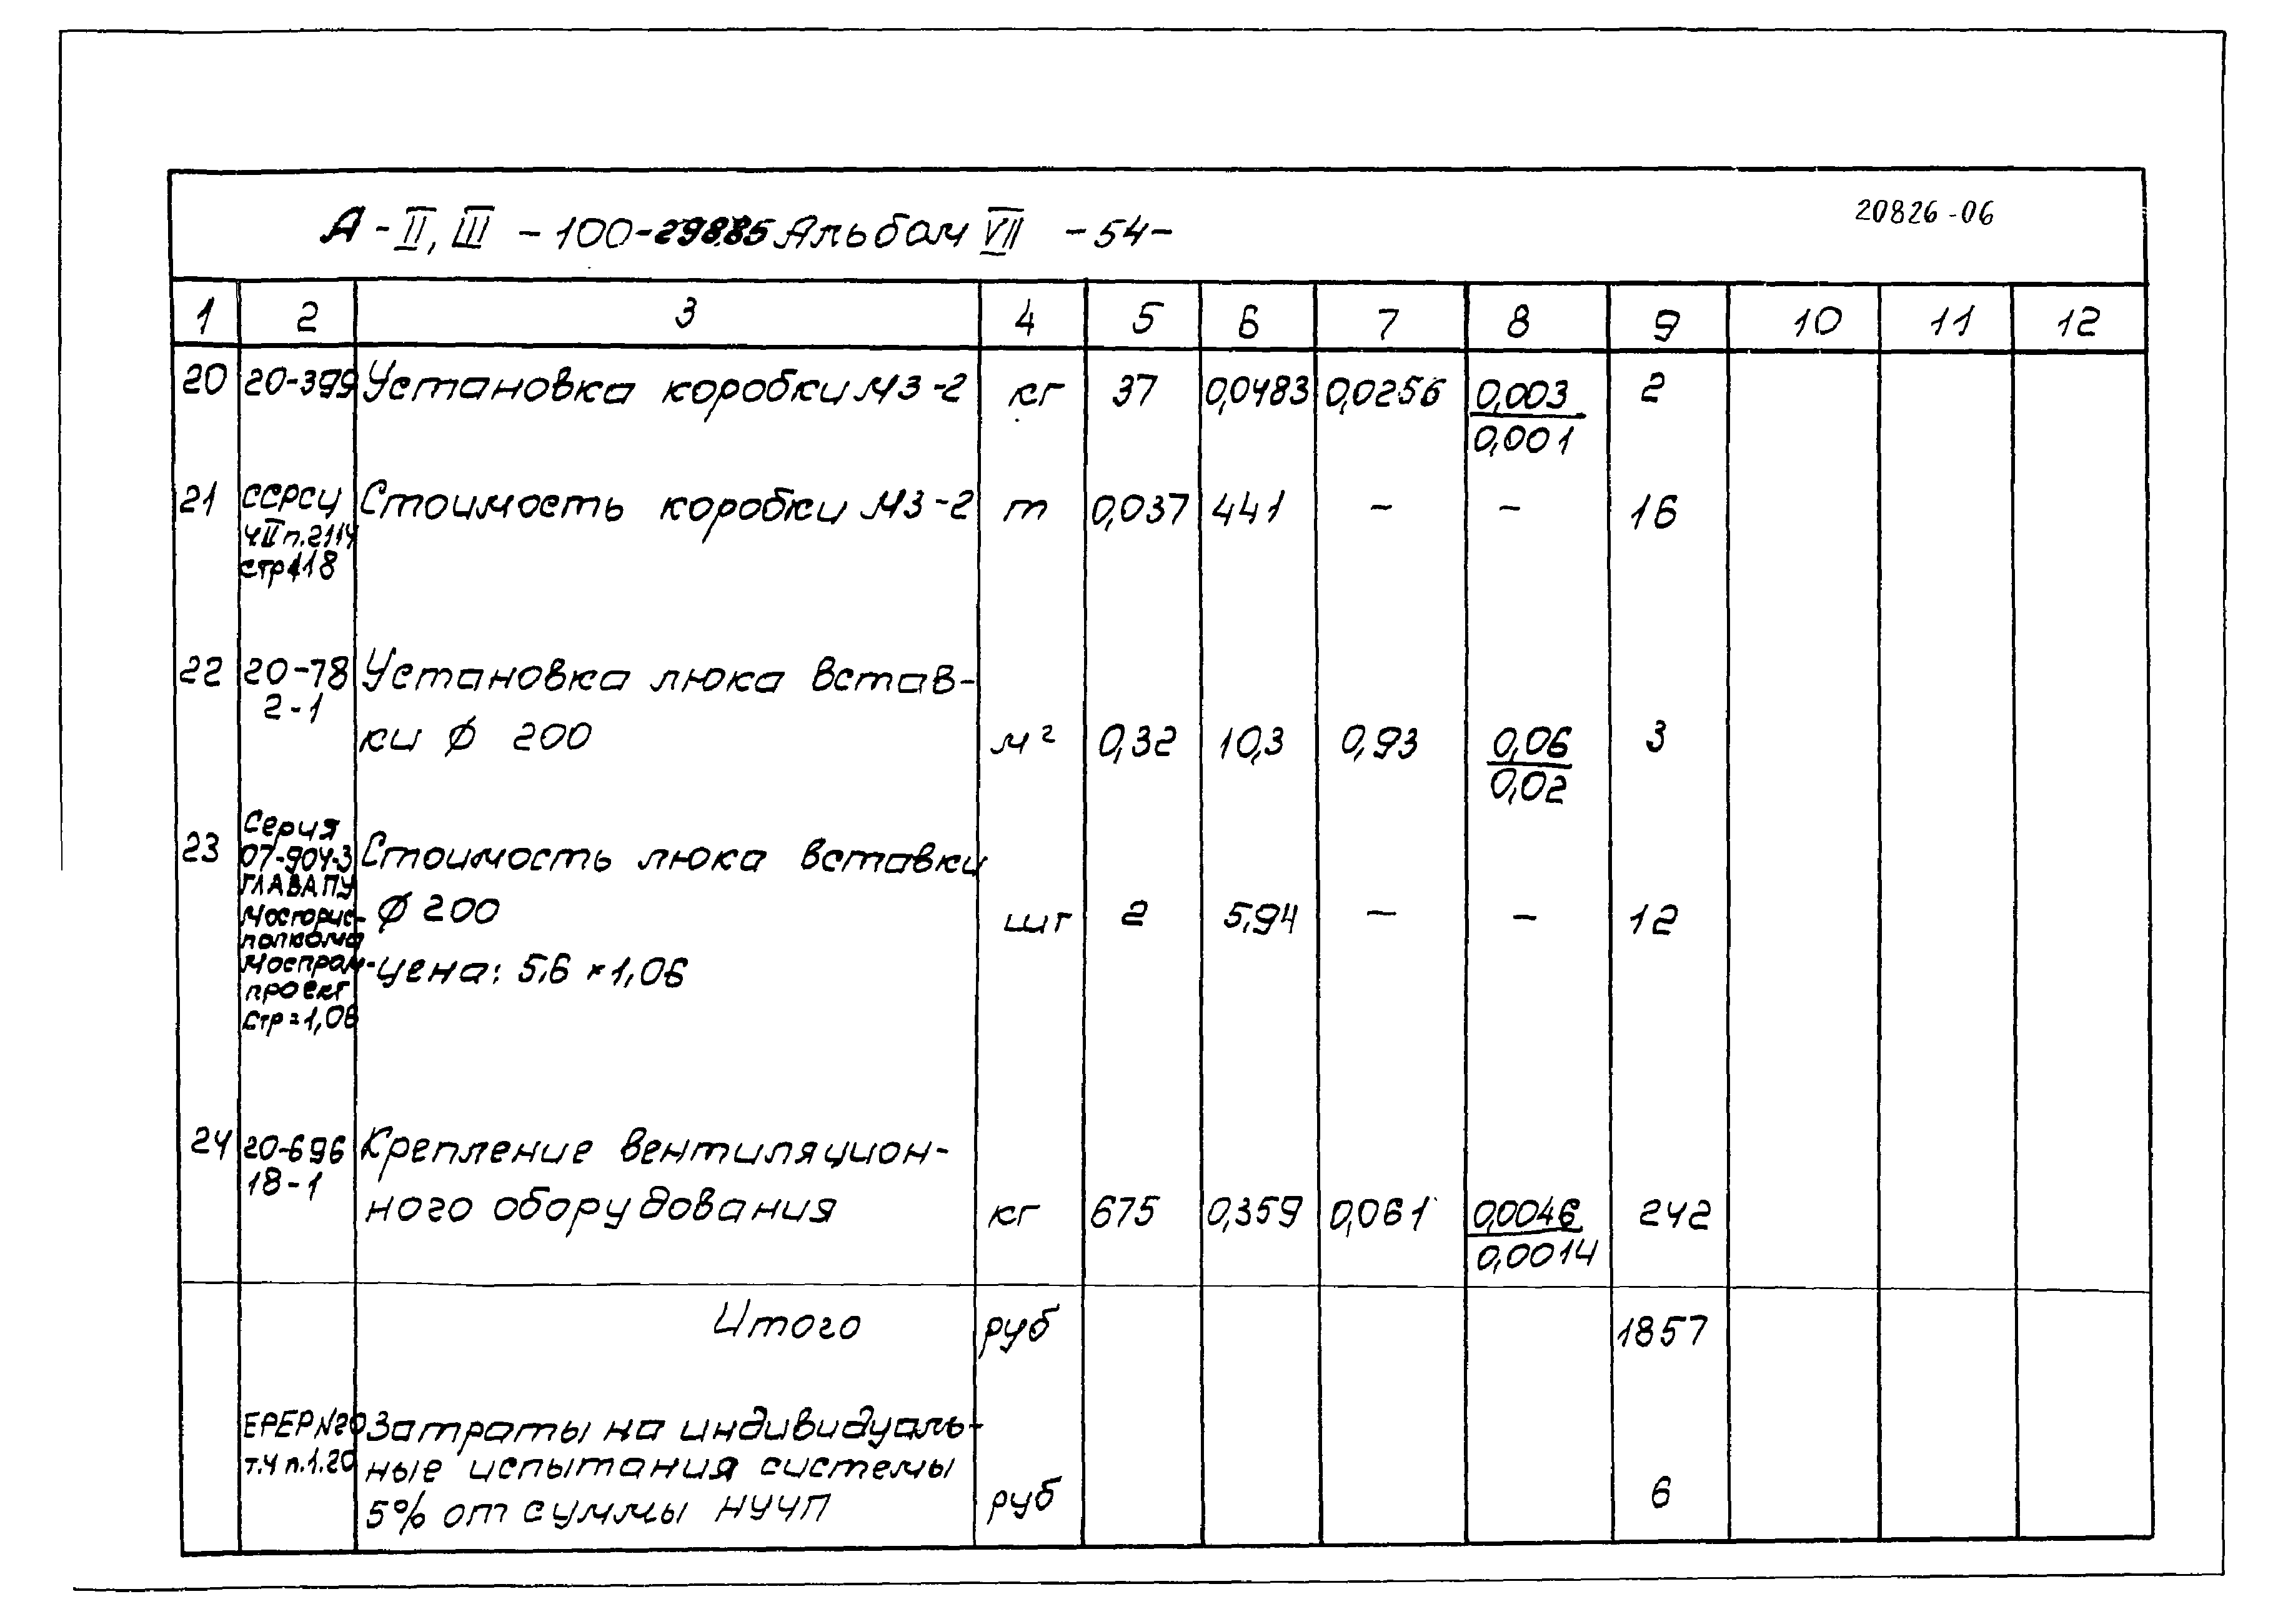 20826-06
А - II, III - 100-298.85 Альбом VII -54-
1 2 3 4 5 6 7 8 9 10 11 12
20 20-399 Установка коробки МЗ-2 кг 37 0,0483 0,0256 0,003 2
0,001
21 ССРСЦ Стоимость коробки МЗ-2 т 0,037 441 - - 16
ч II п.2114
стр 118
22 20-78 Установка люка встав-
2-1
ки Ø 200 м² 0,32 10,3 0,93 0,06 3
0,02
Серия
23 07-904-3 Стоимость люка вставки
ГЛАВАПУ
Мосгорис- Ø 200 шт 2 5,94 - - 12
полкома
Моспром- цена: 5,6 × 1,06
проект
стр = 1,06
24 20-696 Крепление вентиляцион-
18-1
ного оборудования кг 675 0,359 0,061 0,0046 242
0,0014
Итого руб 1857
ЕРЕР№20 Затраты на индивидуаль-
т.ч п.1.20 ные испытания системы
5% от суммы НУЧП руб 6